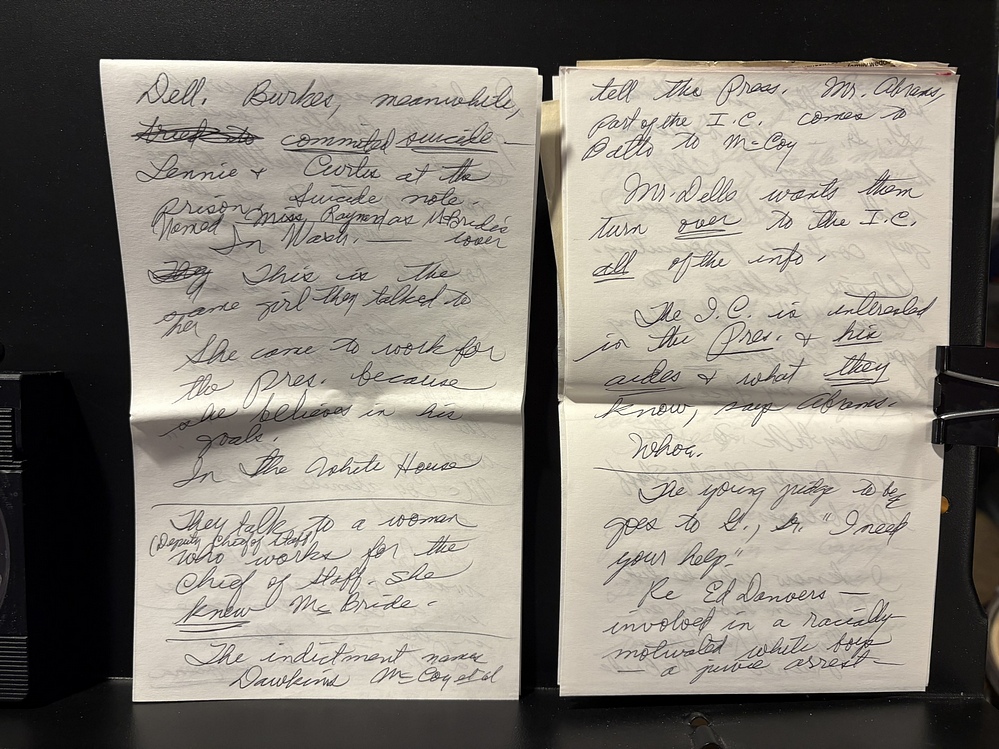 Dell. Burkes, meanwhile,
tried to commuted suicide —
Lennie + Curtis at the
prison. Suicide note.
Named Miss Raymond as McBride's
In Wash. — lover
They This is the
same girl they talked to
her
She came to work for
the Pres. because
she believes in his
goals.
In the White House
They talk to a woman
(Deputy Chief of Staff)
who works for the
Chief of Staff. She
knew McBride.
The indictment names
Dawkins McCoy et al
tell the Press. Mr. Abrams,
part of the I.C. comes to
Batto to McCoy
Mr. Dells wants them
turn over to the I.C.
all of the info.
The I.C. is interested
in the Pres. & his
aides & what they
know, says Abrams.
Whoa.
The young judge to be
goes to S., Sr. "I need
your help."
Re Ed Danvers —
involved in a racially
motivated white boys
— a juvie arrest —